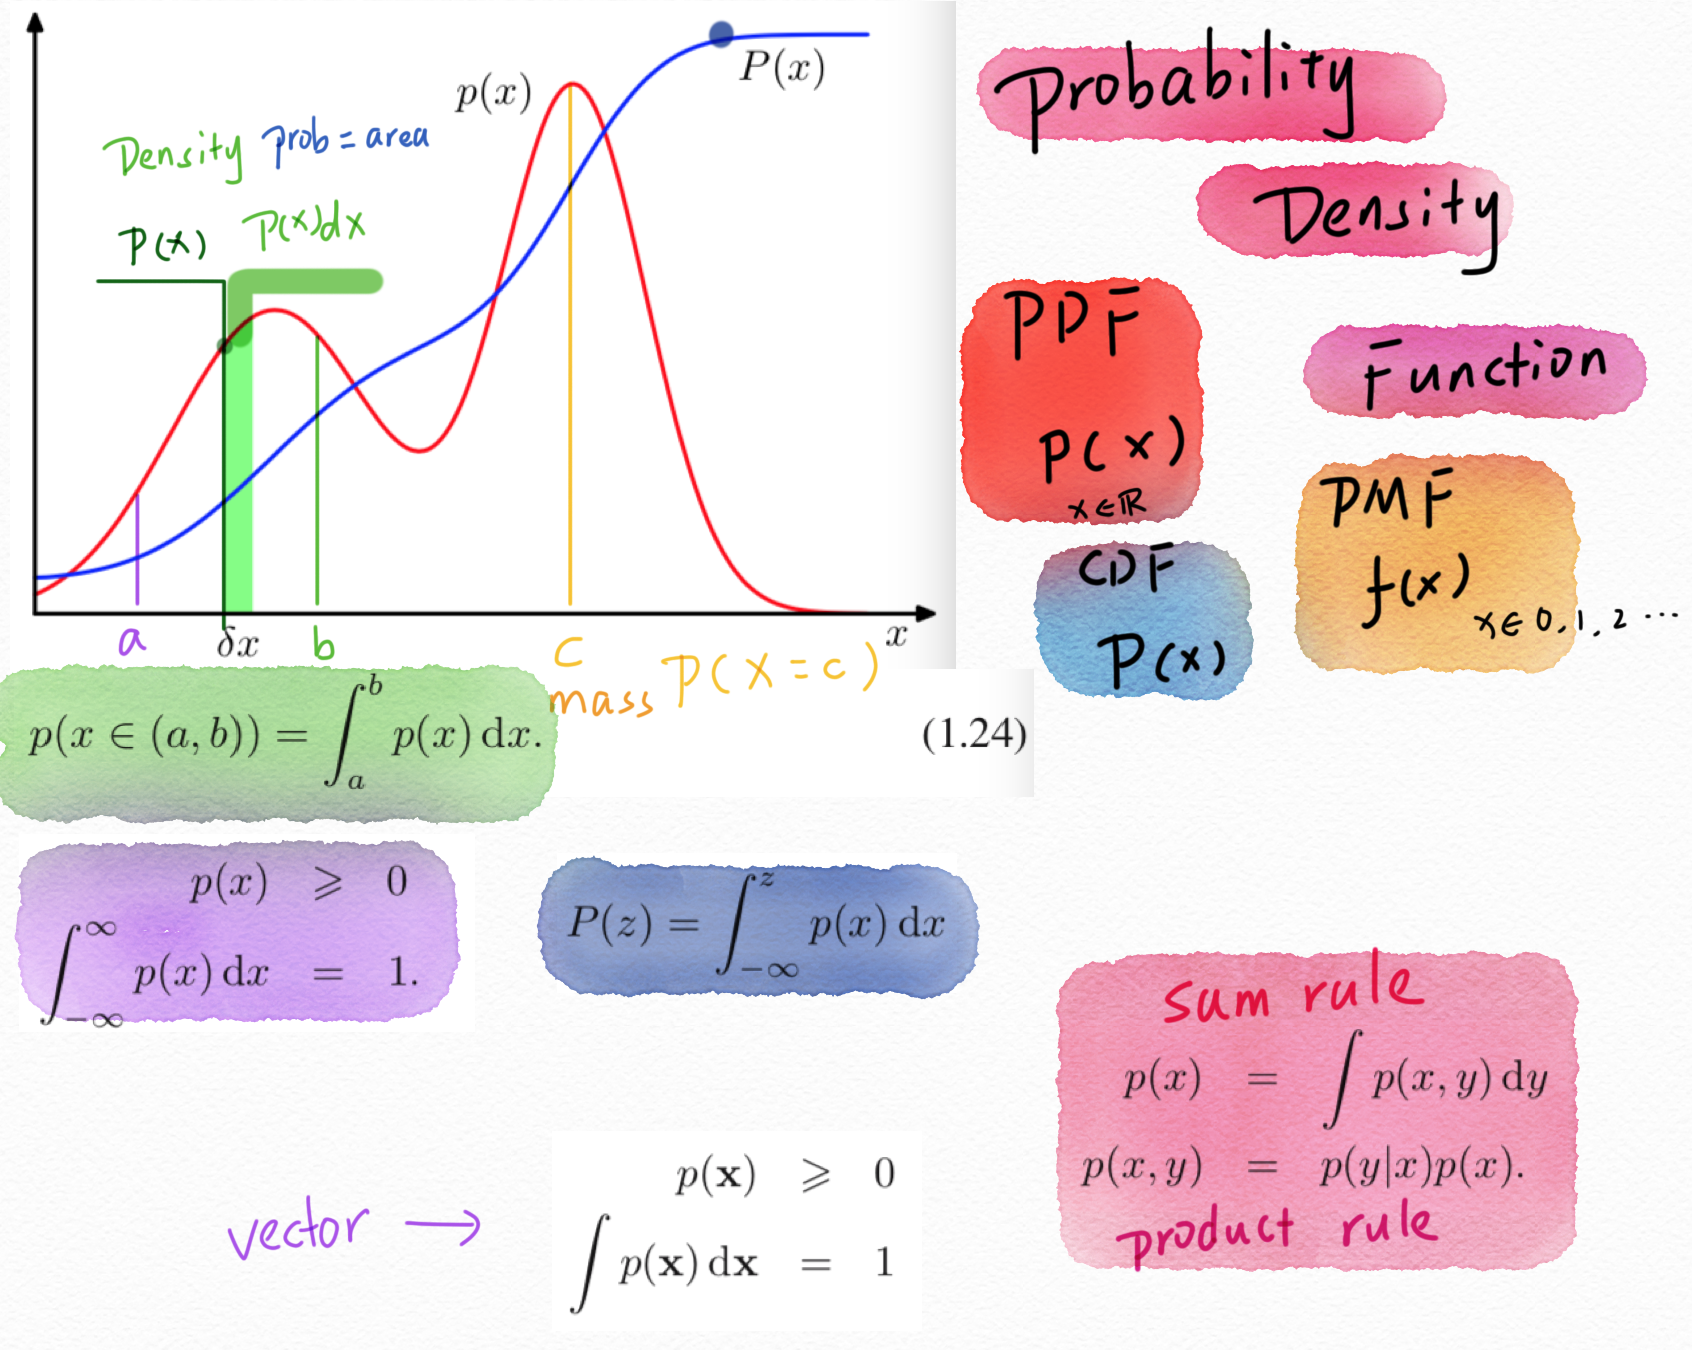 p(x)
P(x)
Density prob = area
P(x) P(x)dx
δx
x
a b c
mass P(X=c)
p(x ∈ (a, b)) = ∫_a^b p(x) dx. (1.24)
p(x) ⩾ 0
∫_{−∞}^{∞} p(x) dx = 1.
P(z) = ∫_{−∞}^{z} p(x) dx
vector →
p(𝐱) ⩾ 0
∫ p(𝐱) d𝐱 = 1
Probability
Density
Function
PDF
p(x)
x∈ℝ
CDF
P(x)
PMF
f(x)
x∈ 0, 1, 2 ...
sum rule
p(x) = ∫ p(x, y) dy
p(x, y) = p(y|x)p(x).
product rule